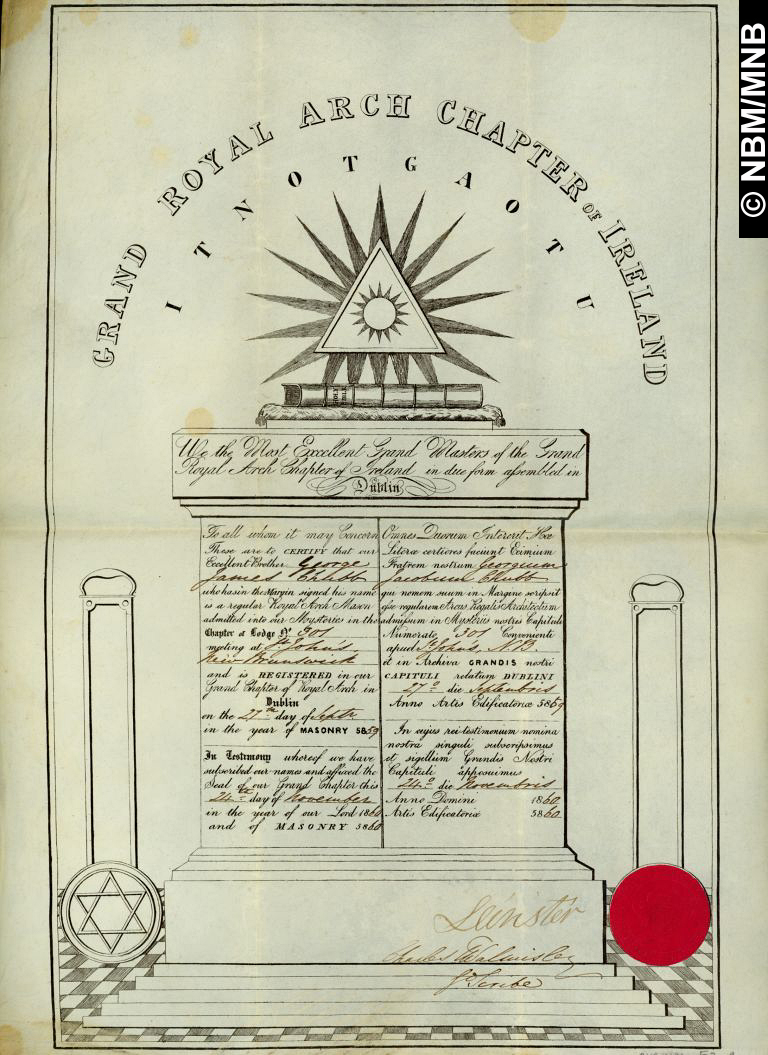 © NBM/MNB
GRAND ROYAL ARCH CHAPTER OF IRELAND
I T N O T G A O T U
HOLY BIBLE
We the Most Excellent Grand Masters of the Grand
Royal Arch Chapter of Ireland in due form assembled in
Dublin
To all whom it may Concern
These are to CERTIFY that our
Excellent Brother George
James Chubb
who has in the Margin signed his name
is a regular Royal Arch Mason
admitted into our Mysteries in the
Chapter of Lodge No. 301
meeting at St. John's,
New Brunswick
and is REGISTERED in our
Grand Chapter of Royal Arch in
Dublin
on the 27th day of Septr
in the year of MASONRY 5859
In Testimony whereof we have
subscribed our names and affixed the
Seal of our Grand Chapter this
24th day of November
in the year of our Lord 1860
and of MASONRY 5860
Omnes Quorum Interest Hæ
Literæ certiores faciunt Eximium
Fratrem nostrum Georgium
Jacobum Chubb
qui nomem suum in Margine scripsit
esse regularem Arcus Regalis Architectum
admissum in Mysteriis nostris Capituli
Numerate 301 Conveniente
apud St Johns, N.B.
et in Archiva GRANDIS nostri
CAPITULI relatum DUBLINI
27o die Septembris
Anno Artis Edificatoriæ 5859
In cujus rei testimonium nomina
nostra singuli subscripsimus
et sigillum Grandis Nostri
Capituli apposuimus
24o die Novembris
Anno Domini 1860
Artis Edificatoriæ 5860
Leinster
Charles Walmisley
Gd Scribe